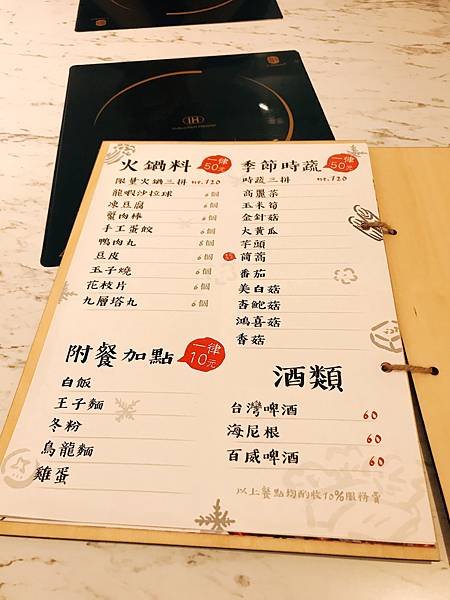 火鍋料 一律50元
限量火鍋三拼 NT.120
龍蝦沙拉球 6個
凍豆腐 6個
蟹肉棒 6個
手工蛋餃 6個
鴨肉丸 8個
豆皮 6個
玉子燒 6個
花枝片 6個
九層塔丸 6個
季節時蔬 一律50元
時蔬三拼 NT.120
高麗菜
玉米筍
金針菇
大黃瓜
芋頭
茼蒿
番茄
美白菇
杏鮑菇
鴻喜菇
香菇
附餐加點 一律10元
白飯
王子麵
冬粉
烏龍麵
雞蛋
酒類
台灣啤酒 60
海尼根 60
百威啤酒 60
以上餐點均酌收10%服務費
IH